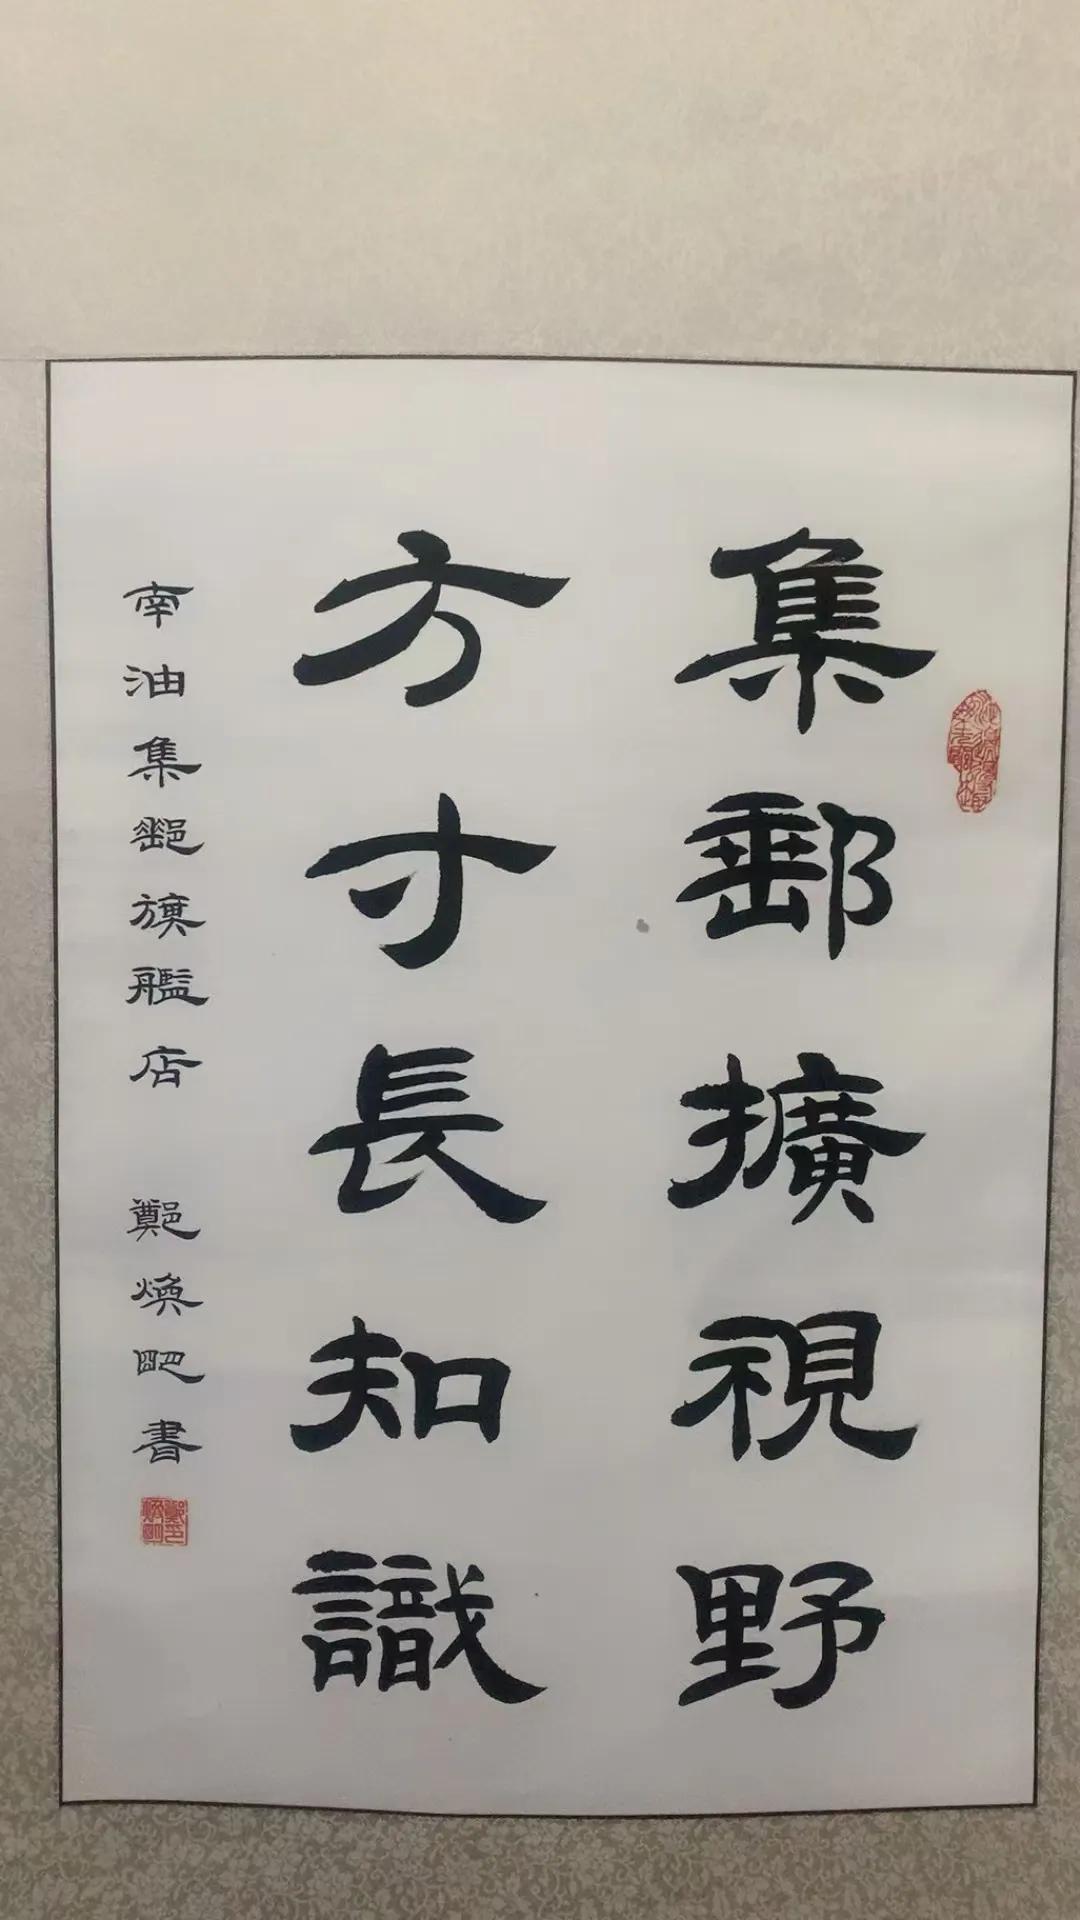 集郵擴視野
方寸長知識
南油集郵旗艦店 鄭煥明書